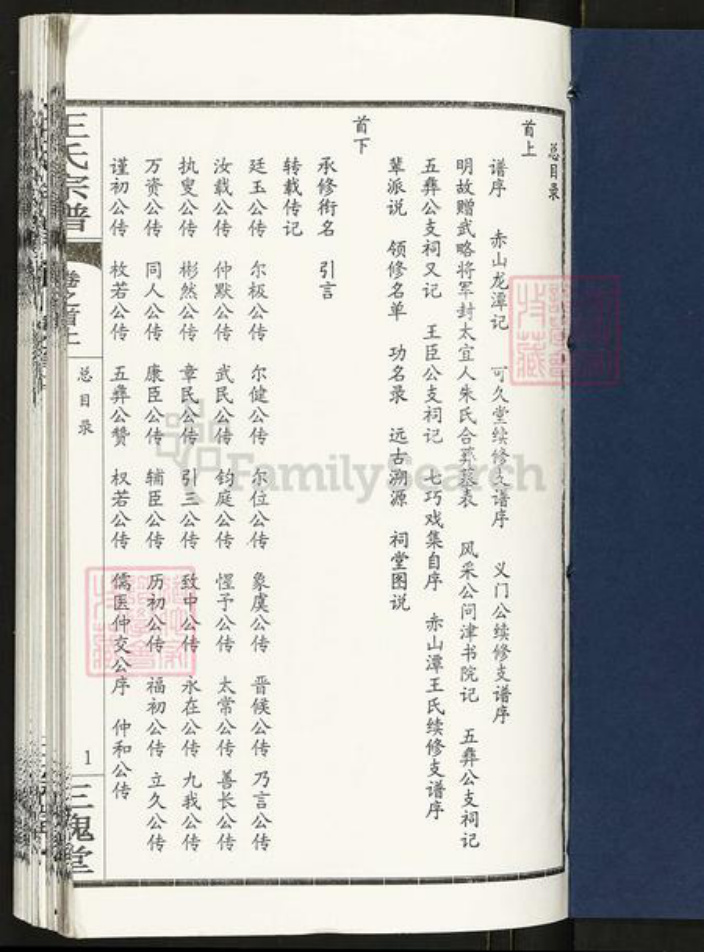 总目录
首上
谱序 赤山龙潭记 可久堂续修支谱序 义门公续修支谱序
明故赠武略将军封太宜人朱氏合葬墓表 风采公问津书院记 五彝公支祠记
五彝公支祠又记 王臣公支祠记 七巧戏集自序 赤山潭王氏续修支谱序
辈派说 领修名单 功名录 远古溯源 祠堂图说
首下
承修衔名 引言
转载传记
廷玉公传 尔极公传 尔健公传 尔位公传 象虞公传 晋候公传 乃言公传
汝载公传 仲默公传 武民公传 钧庭公传 惺予公传 太常公传 善长公传
执叟公传 彬然公传 章民公传 引三公传 致中公传 永在公传 九我公传
万资公传 同人公传 康臣公传 辅臣公传 历初公传 福初公传 立久公传
谨初公传 枚若公传 五彝公赞 权若公传 儒医仲交公序 仲和公传
王氏宗谱
卷之首上
总目录
1
三槐堂
FamilySearch